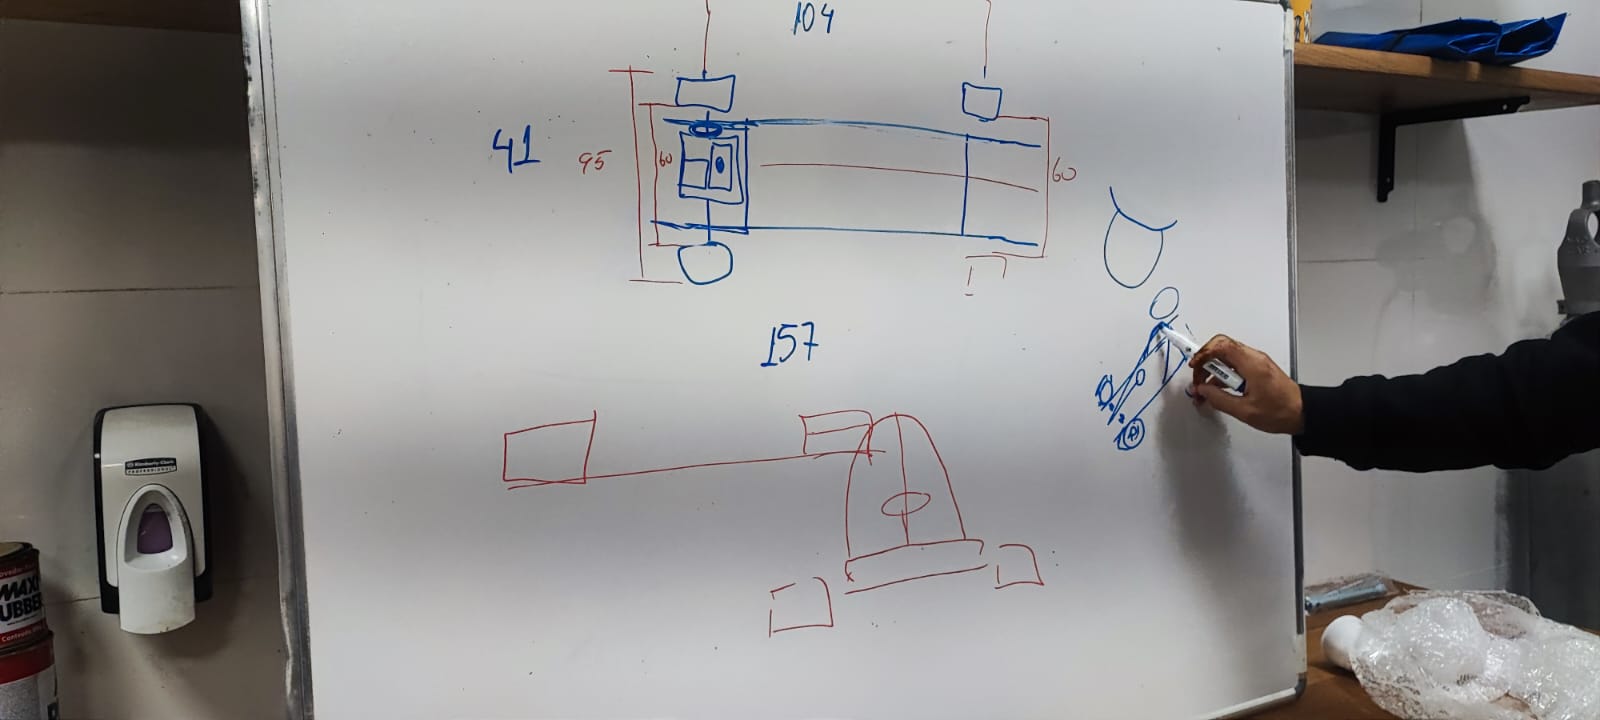 104
41
95
60
60
157
Kimberly-Clark
PROFESSIONAL
MAXI
RUBBER